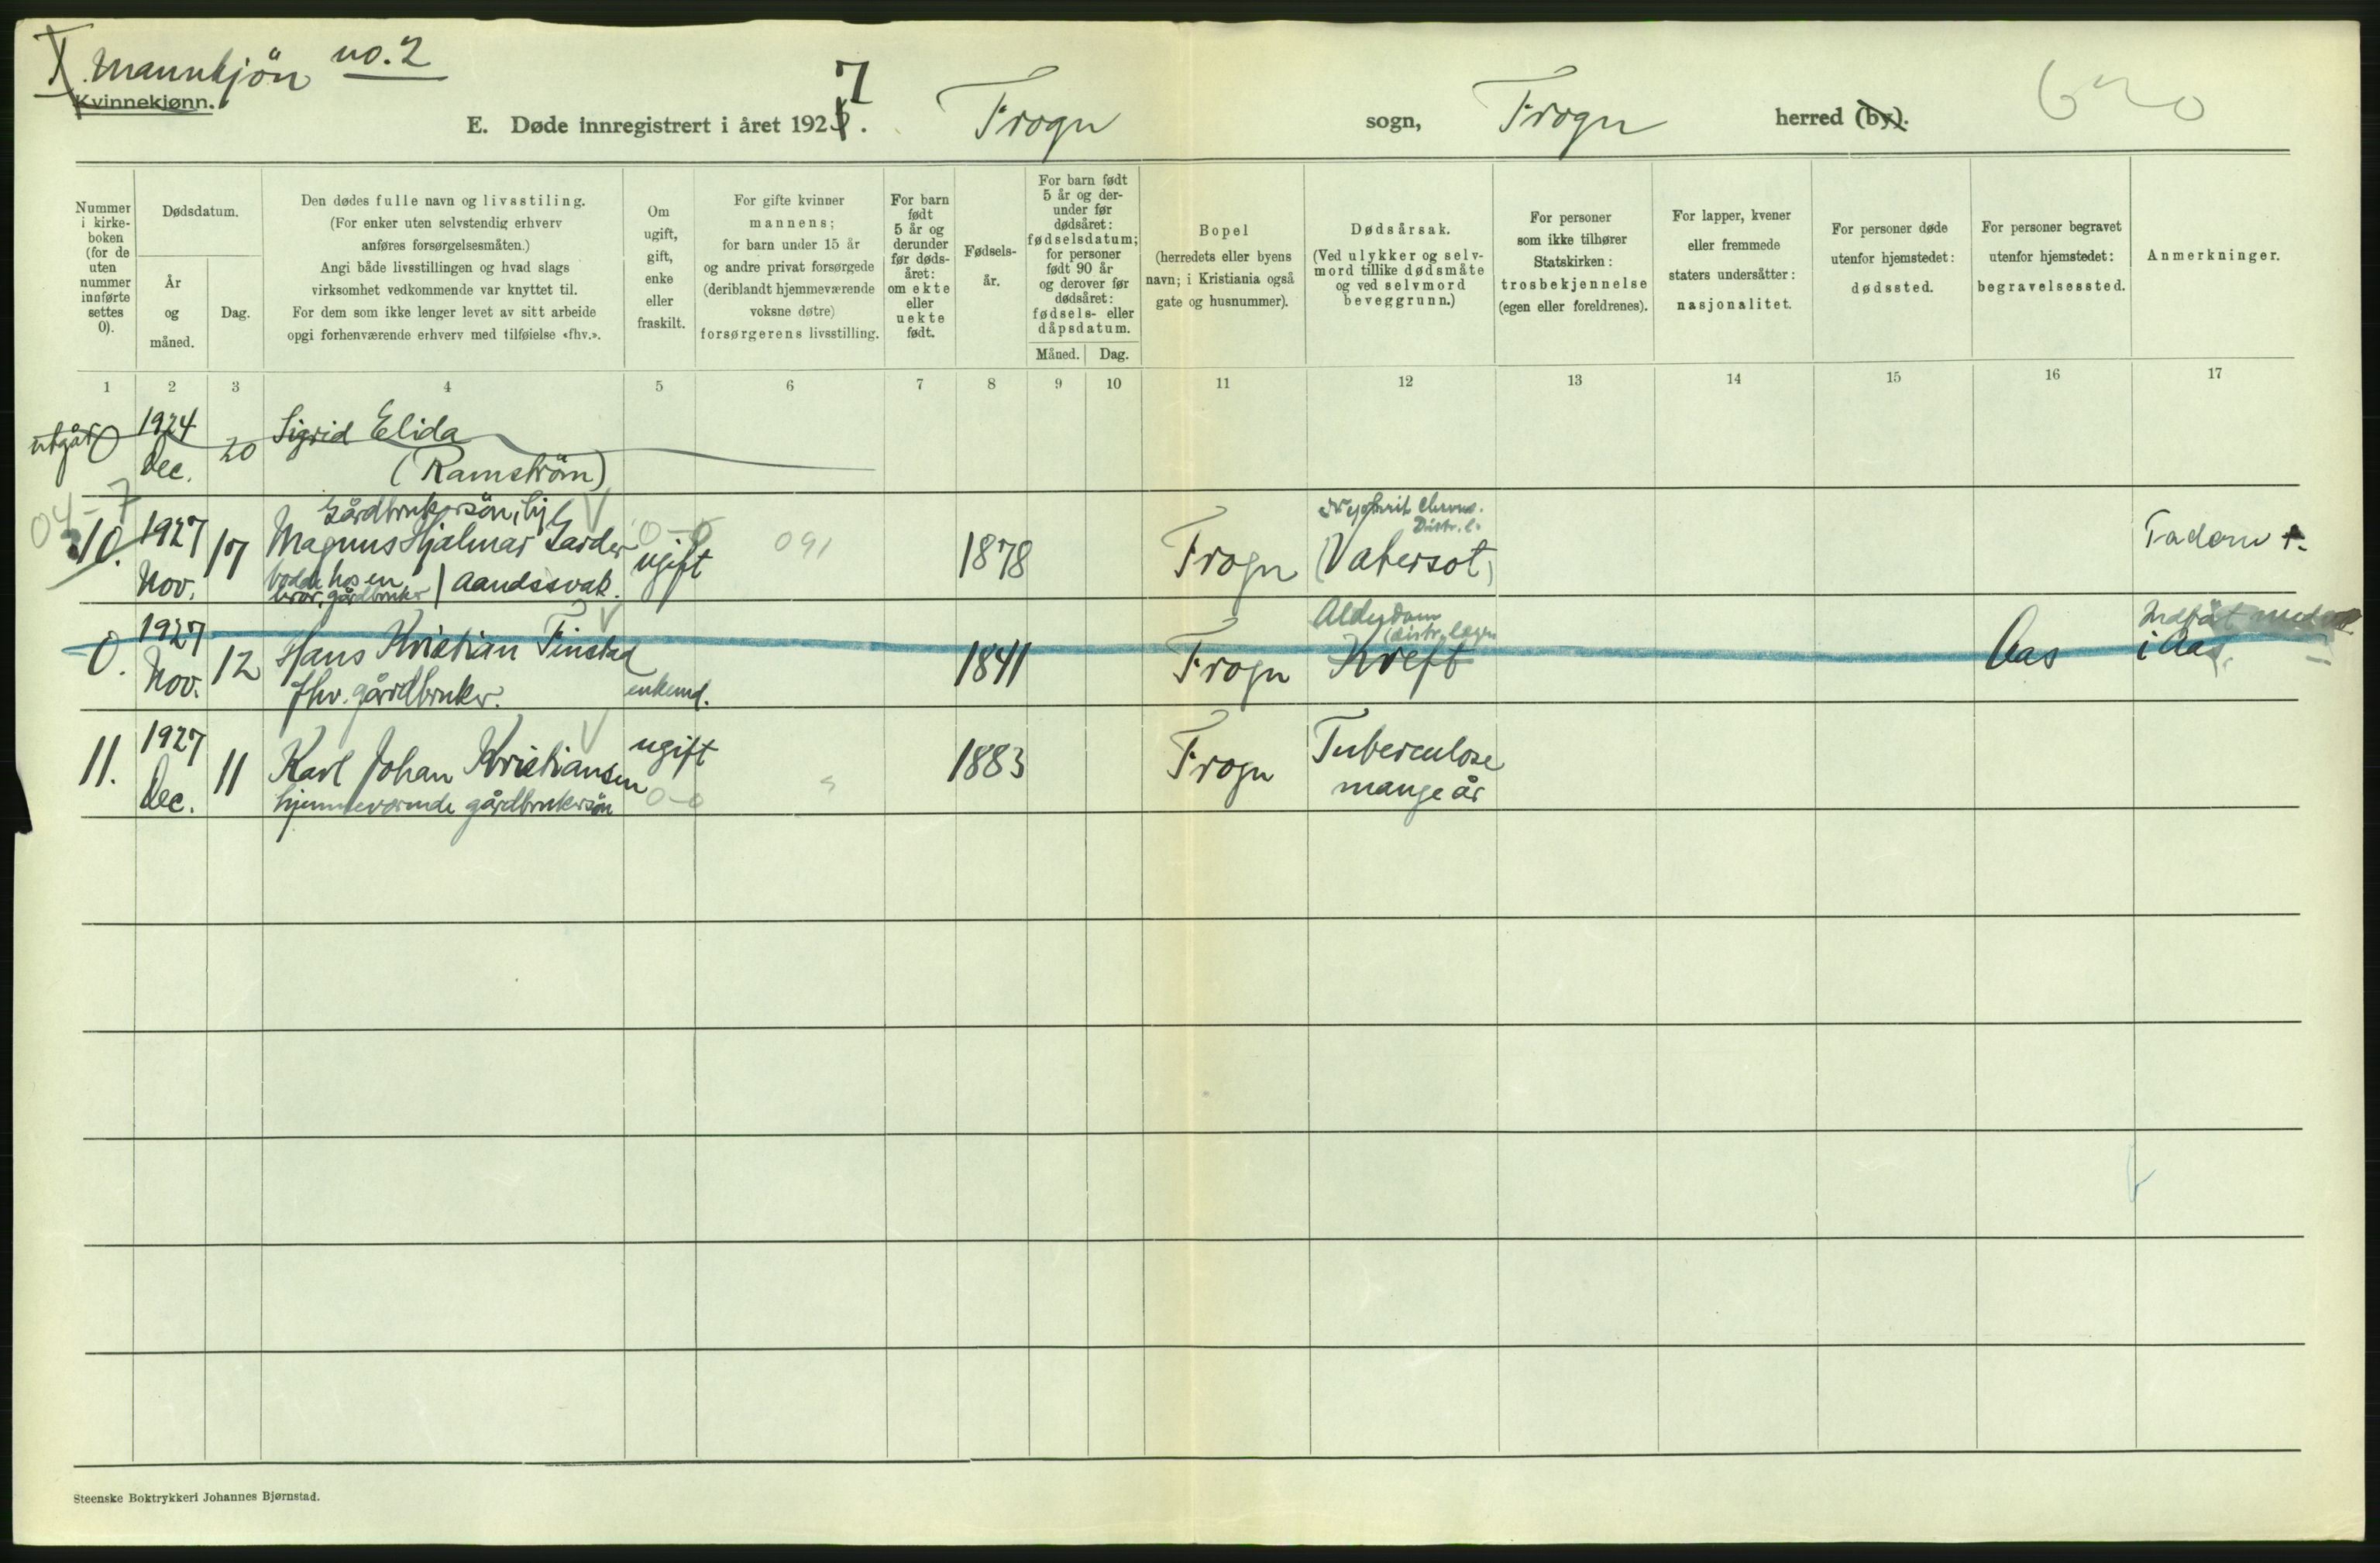 Mannkjön no. 2
Kvinnekjønn.
E. Døde innregistrert i året 1927. Frogn sogn, Frogn herred (by).
Nummer i kirke-boken (for de uten nummer innførte settes 0).
Dødsdatum.
År og måned.
Dag.
Den dødes fulle navn og livsstiling.
(For enker uten selvstendig erhverv
anføres forsørgelsesmåten.)
Angi både livsstillingen og hvad slags
virksomhet vedkommende var knyttet til.
For dem som ikke lenger levet av sitt arbeide
opgi forhenværende erhverv med tilføielse «fhv.».
Om ugift, gift, enke eller fraskilt.
For gifte kvinner
mannens;
for barn under 15 år
og andre privat forsørgede
(deriblandt hjemmeværende
voksne døtre)
forsørgerens livsstilling.
For barn født 5 år og derunder før døds-året: om ekte eller uekte født.
Fødsels-år.
For barn født 5 år og der-under før dødsåret: fødselsdatum; for personer født 90 år og derover før dødsåret: fødsels- eller dåpsdatum.
Måned. Dag.
Bopel
(herredets eller byens
navn; i Kristiania også
gate og husnummer).
Dødsårsak.
(Ved ulykker og selv-
mord tillike dødsmåte
og ved selvmord
beveggrunn.)
For personer
som ikke tilhører
Statskirken:
trosbekjennelse
(egen eller foreldrenes).
For lapper, kvener
eller fremmede
staters undersåtter:
nasjonalitet.
For personer døde
utenfor hjemstedet:
dødssted.
For personer begravet
utenfor hjemstedet:
begravelsessted.
Anmerkninger.
1 2 3 4 5 6 7 8 9 10 11 12 13 14 15 16 17
utgår 0 1924 Dec. 20 Sigrid Elida
(Ramström)
04-7
Gårdbrukersön, hj
10. 1927 Nov. 17 Magnus Hjalmar Garder ugift 0-0 091 1878 Frogn (Vatersot)
Distr. l.
bodde hos en
bror, gårdbruker | Aandssvak.
0. 1927 Nov. 12 Hans Kristian Finstad 1841 Frogn Kreft Aas i Aas.
Alderdom
(distr. lægen
fhv. gårdbruker. enkemd.
11. 1927 Dec. 11 Karl Johan Kristiansen ugift 1883 Frogn Tuberculose
hjemmeværende gårdbrukersön 0-0 mange år
Steenske Boktrykkeri Johannes Bjørnstad.